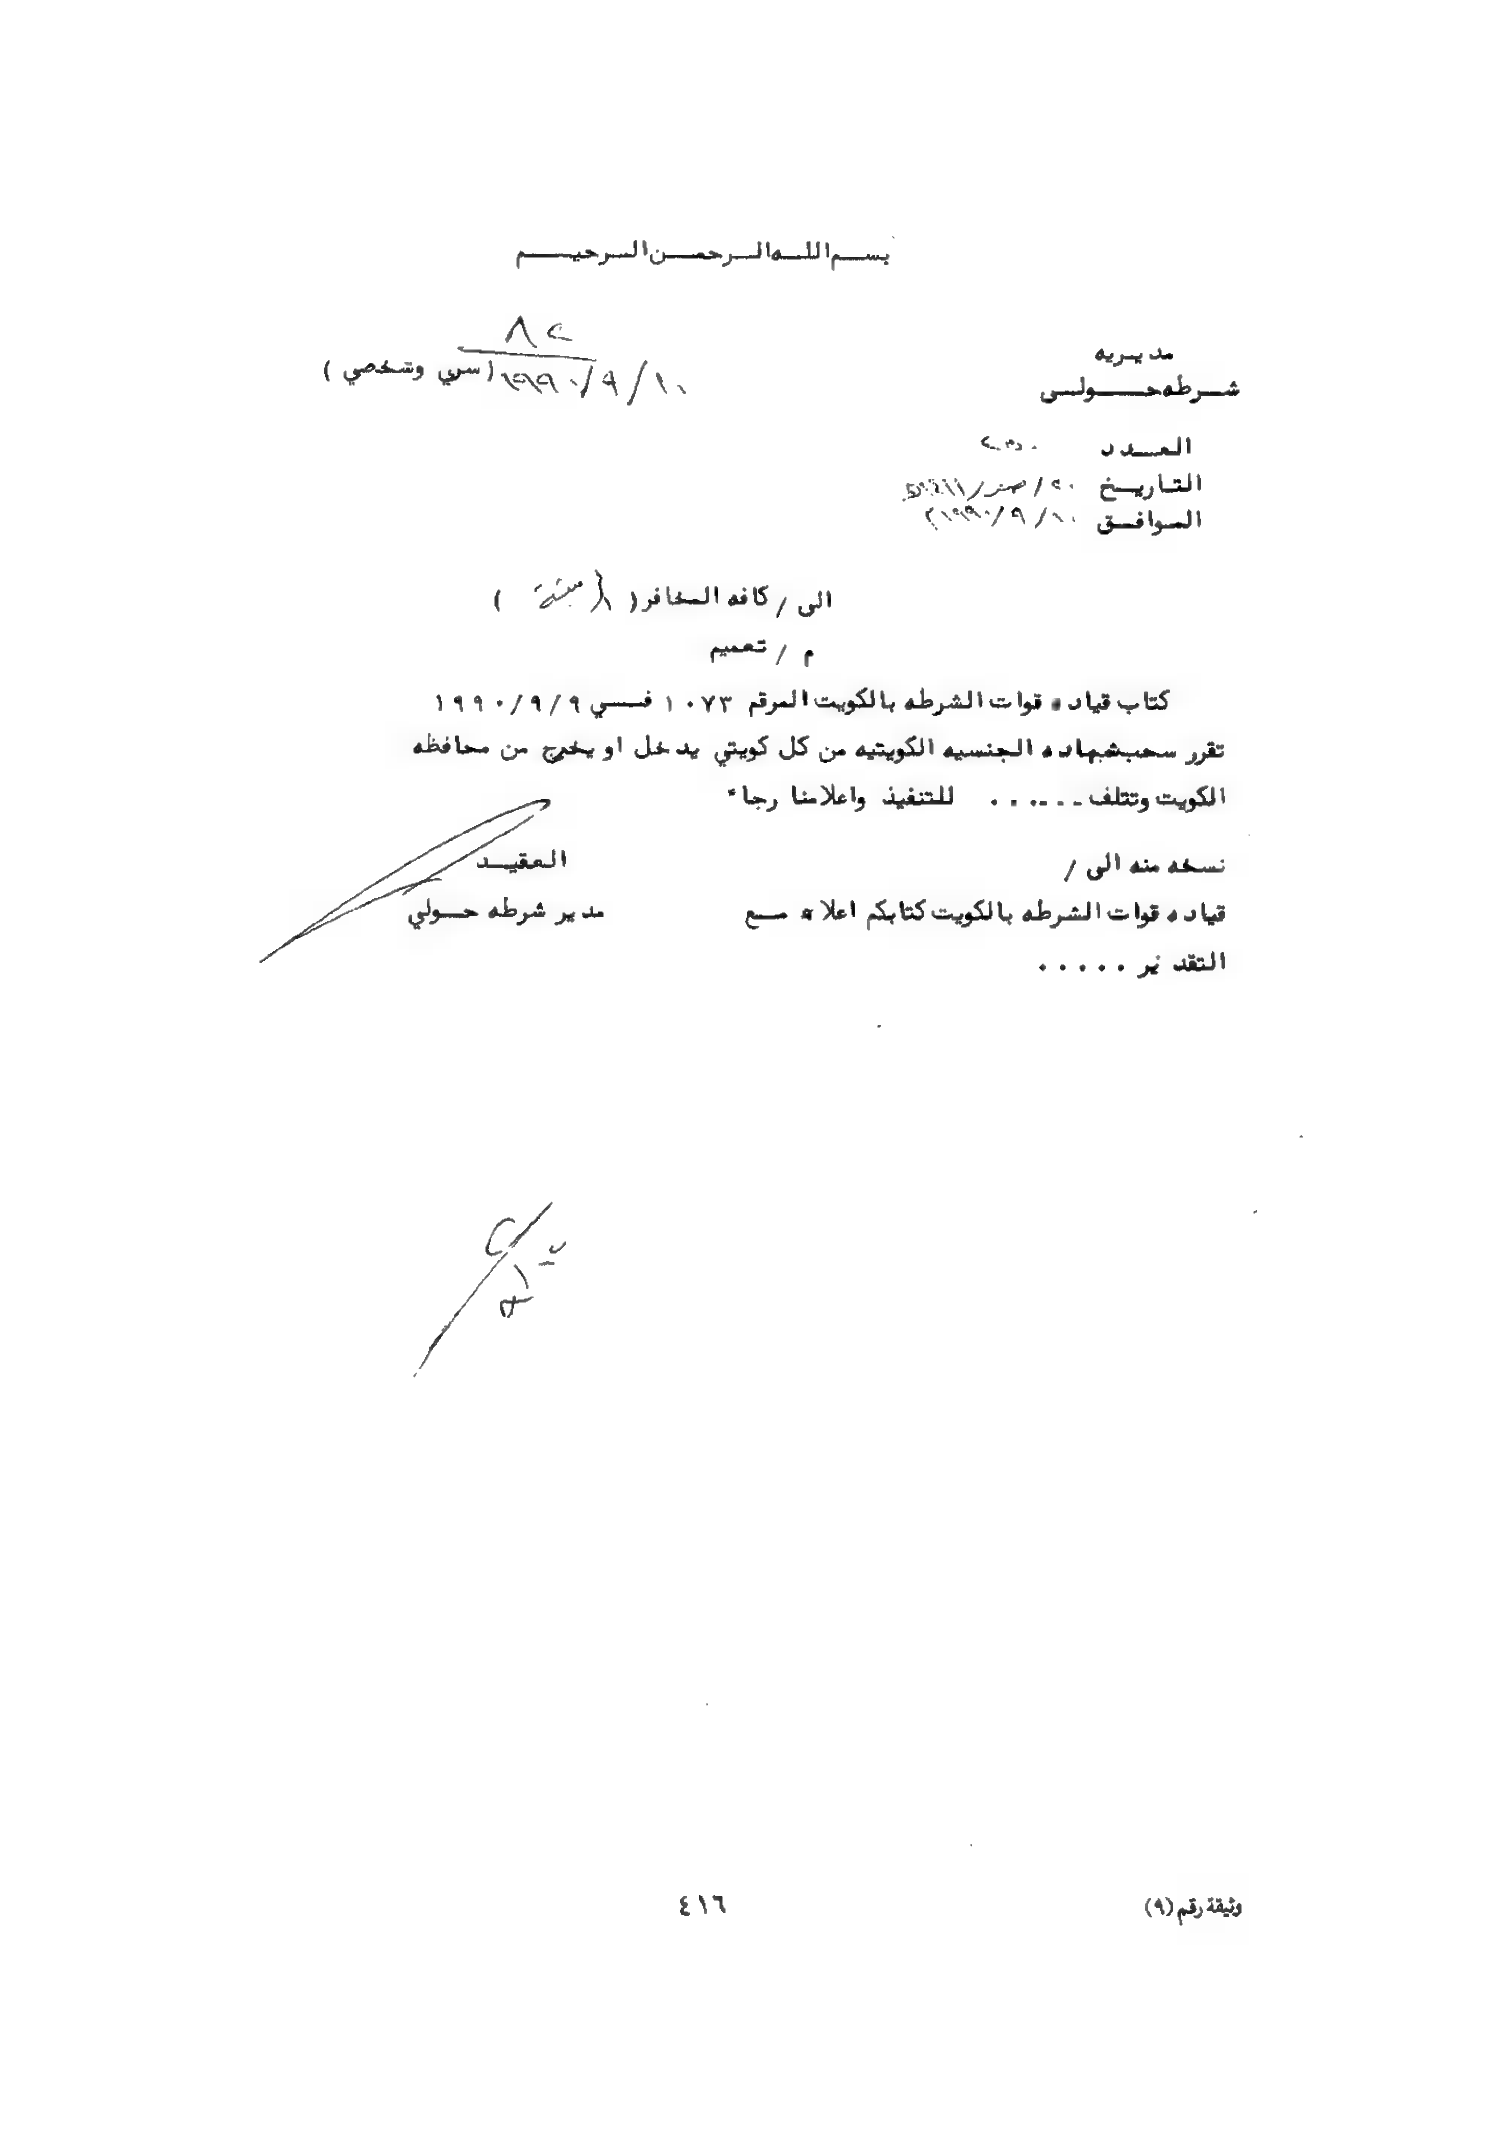 بسم الله الرحمن الرحيم
٨٢
١٠/٩/١٩٩٠ (سري وشخصي)
مديريه
شرطه حولي
العدد
التاريخ ٢٠/صفر/١٤١١هـ
الموافق ١٠/٩/١٩٩٠م
الى / كافه المخافر ( )
م / تعميم
كتاب قياده قوات الشرطه بالكويت المرقم ١٠٧٣ في ٩/٩/١٩٩٠
تقرر سحب شهاده الجنسيه الكويتيه من كل كويتي يدخل او يخرج من محافظه
الكويت وتتلف ...... للتنفيذ واعلامنا رجاء
العقيد
مدير شرطه حولي
نسخه منه الى /
قياده قوات الشرطه بالكويت كتابكم اعلاه مع
التقدير .....
٤١٦
وثيقة رقم (٩)